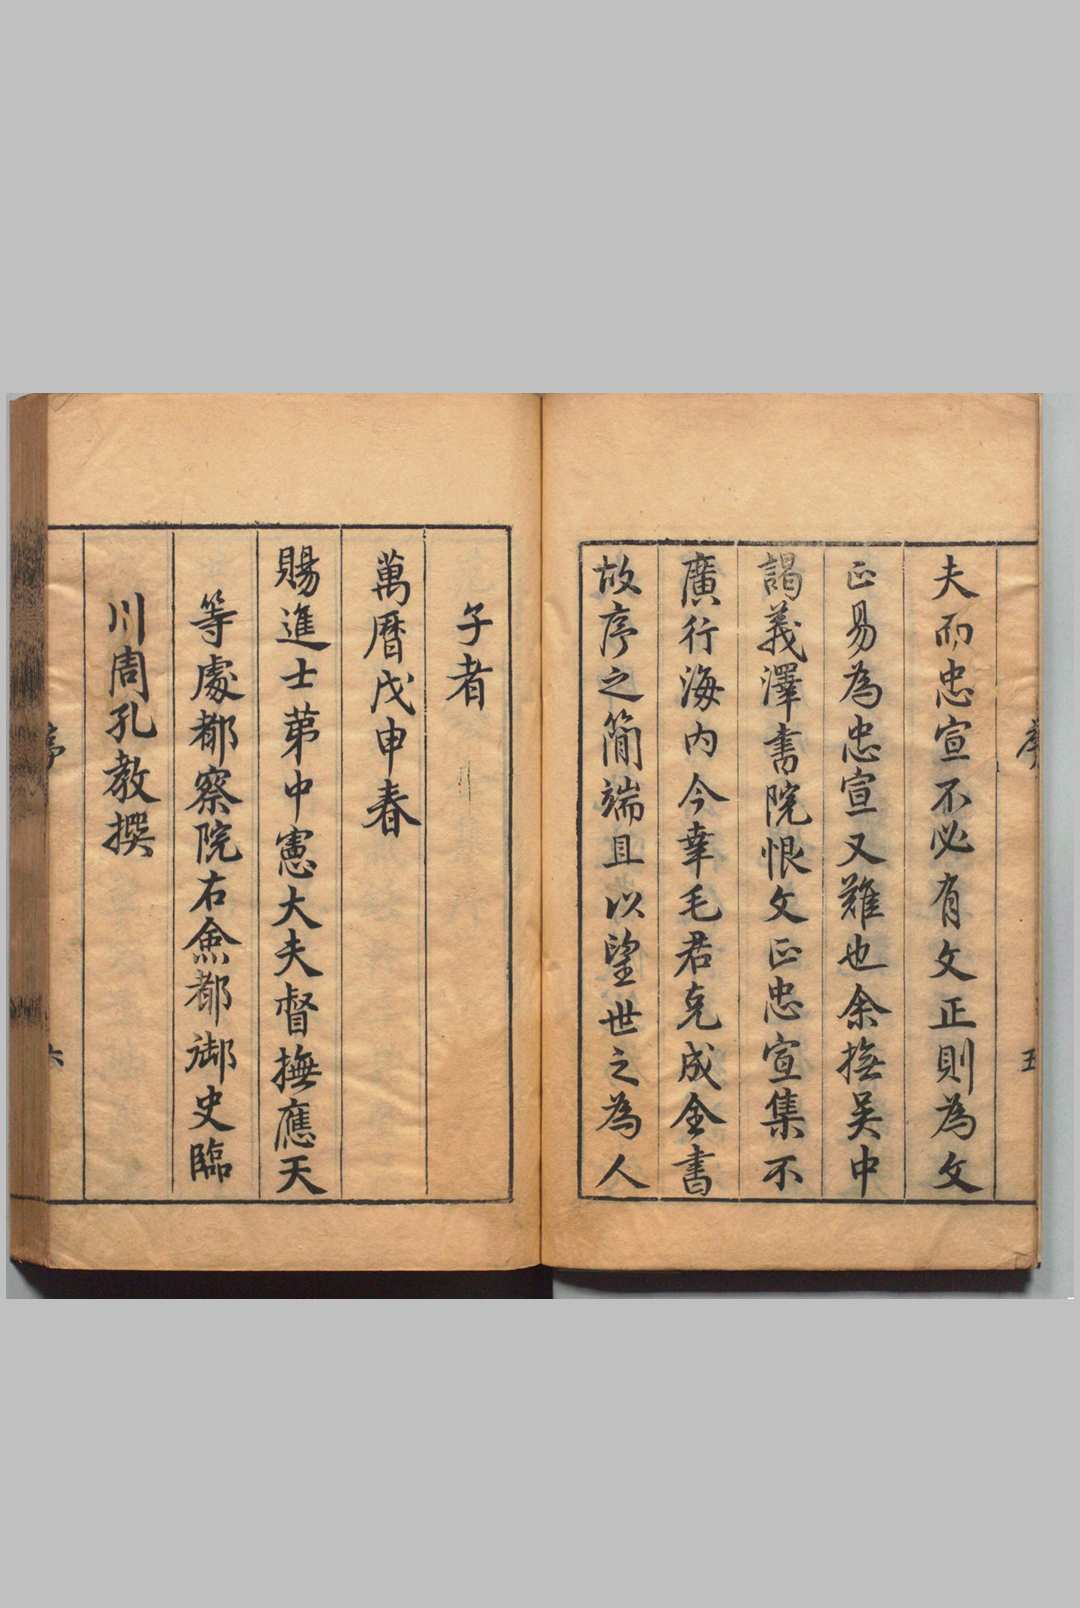 夫而忠宣不必有文正則為文
正易為忠宣又難也余撫吴中
謁義澤書院恨文正忠宣集不
廣行海内今幸毛君克成全書
故序之簡端且以望世之為人
子者
萬曆戊申春
賜進士第中憲大夫督撫應天
等處都察院右僉都御史臨
川周孔教撰
序
六